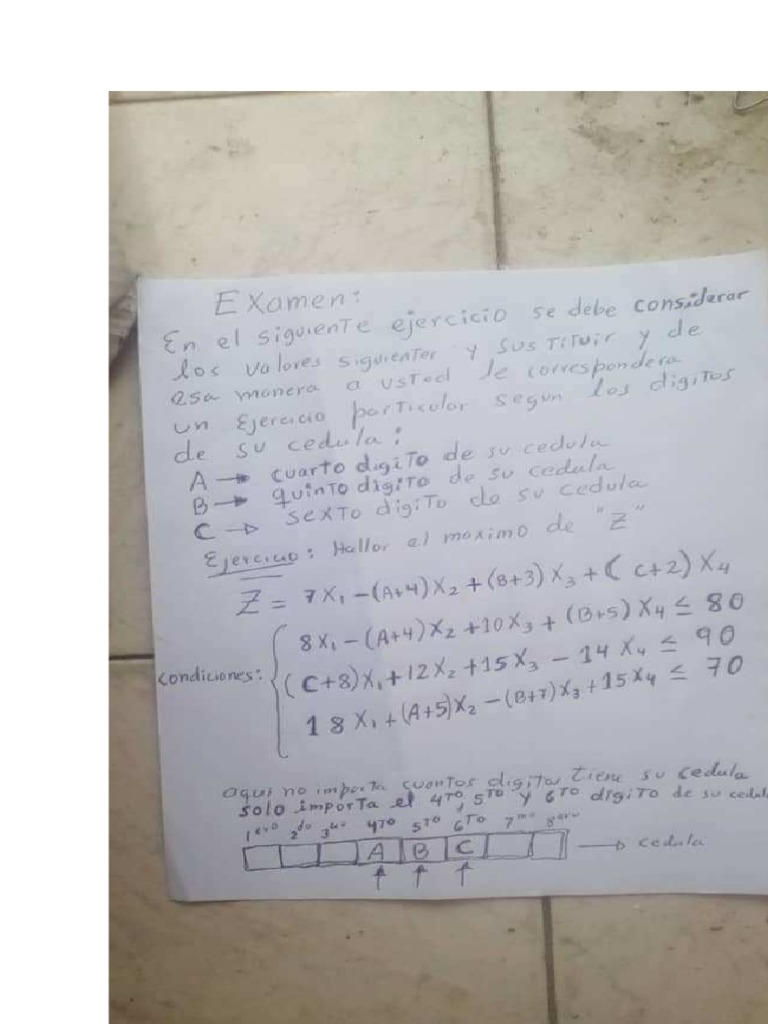 Examen:
En el siguiente ejercicio se debe considerar
los valores siguienter y sustituir y de
esa manera a usted le correspondera
un Ejercicio particular segun los digitos
de su cedula:
A → cuarto digito de su cedula
B → quinto digito de su cedula
C → sexto digito de su cedula
Ejercicio: Hallar el maximo de "Z"
Z = 7X₁ -(A+4)X₂ +(B+3)X₃ +( C+2) X₄
8X₁ -(A+4)X₂ +10X₃ + (B+5) X₄ ≤ 80
condiciones: (C+8)X₁ +12X₂ +15X₃ - 14X₄ ≤ 90
18X₁ +(A+5)X₂ -(B+7)X₃ +15X₄ ≤ 70
aqui no importa cuantos digitos tiene su cedula
solo importa el 4TO, 5TO y 6TO digito de su cedula
1ero 2do 3ero 4TO 5TO 6TO 7mo 8avo
A B C → cedula